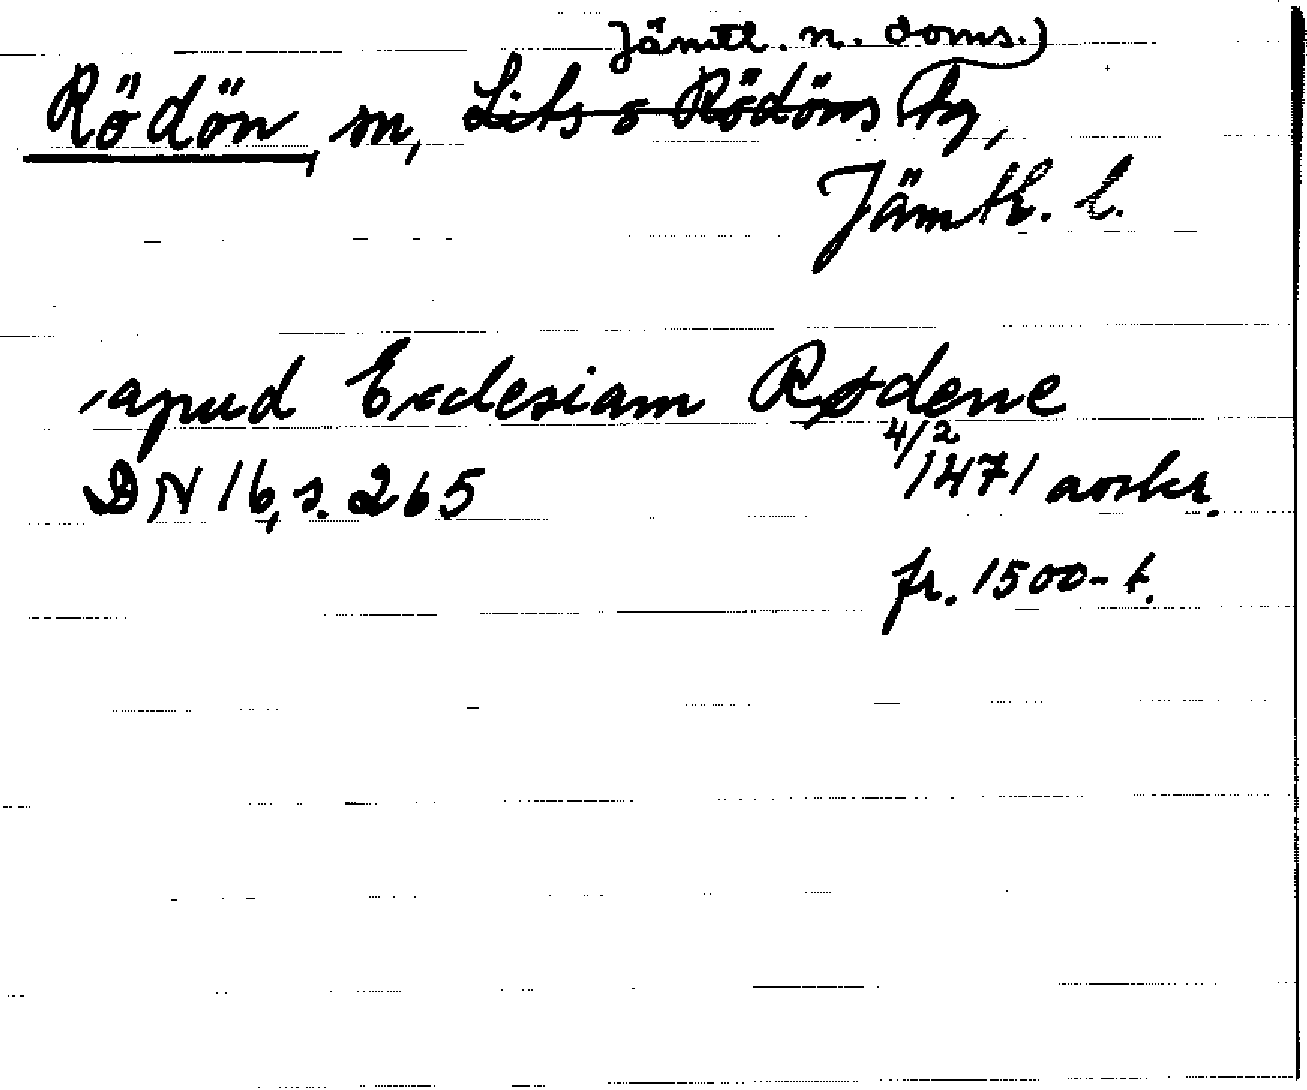 Jämtl. n. doms.)
Rödön, sn, Lits o Rödöns tg,
Jämtl. l.
apud Ecclesiam Rødene
4/2
DN 16, s. 265 1471 avskr.
fr. 1500-t.